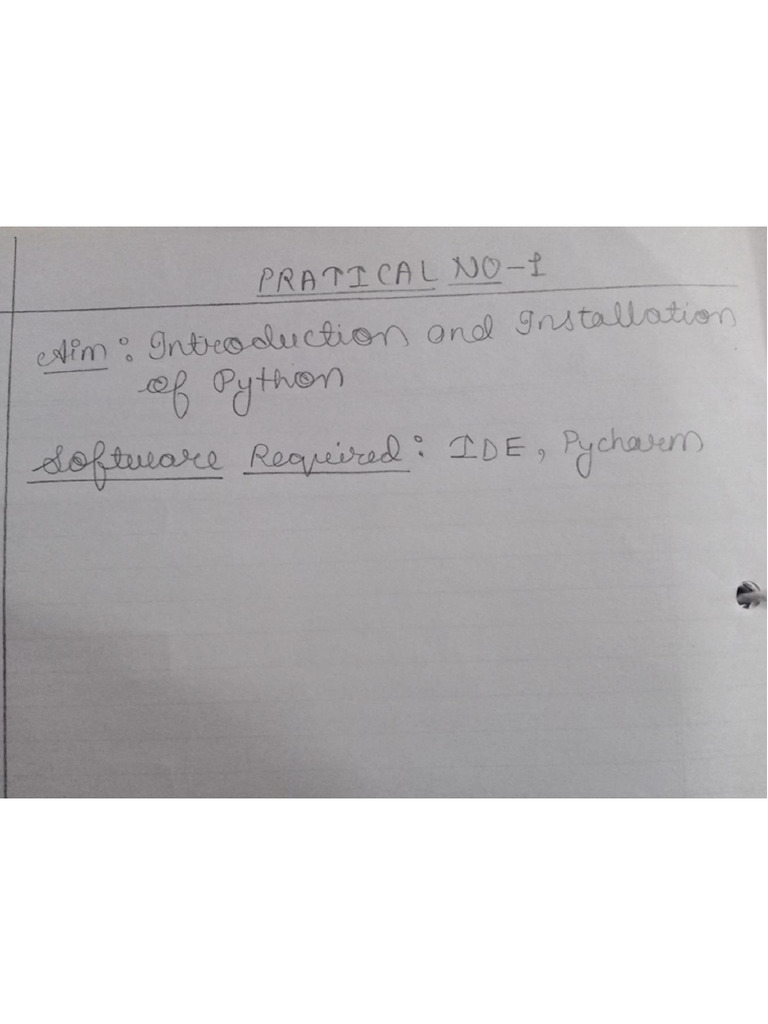 PRATICAL NO-1
Aim: Introduction and Installation
of Python
Software Required: IDE, Pycharm